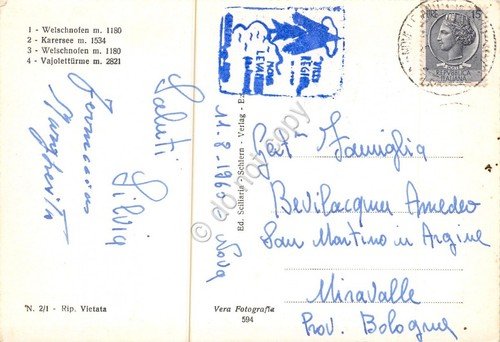 1 - Welschnofen m. 1180
2 - Karersee m. 1534
3 - Welschnofen m. 1180
4 - Vajolettürme m. 2821
Saluti
Silvia
Margherita
N. 2/1 - Rip. Vietata
Ed. Sciliaria - Schlern - Verlag - Ed.
11-8-1960 Nova
Vera Fotografia
594
NOVA
LEVANTE
15
REPUBBLICA
ITALIANA
Gent. Famiglia
Bevilacqua Amedeo
San Martino in Argine
Miravalle
Prov. Bologna.